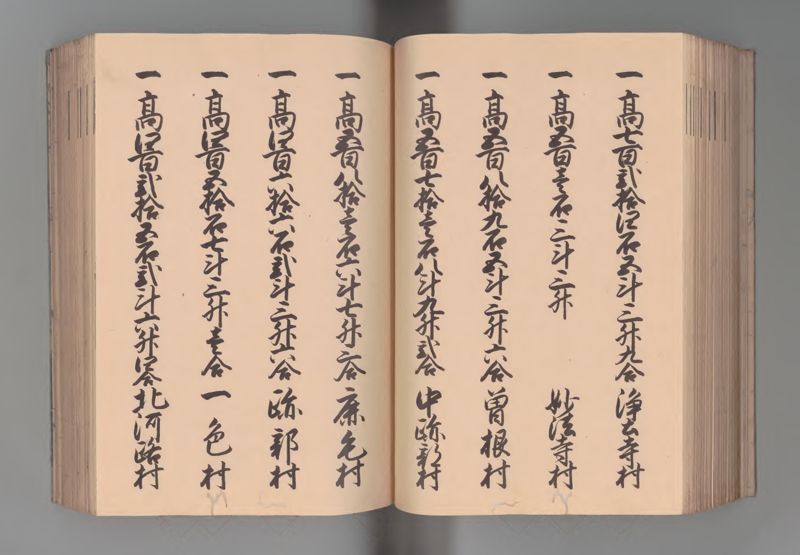 一 高七百弐拾四石五斗三升九合 浄土寺村
一 高五百壱石二斗二升 妙法寺村
一 高五百八拾九石五斗三升六合 曽根村
一 高五百七拾壱石八斗九升弐合 中弥郡村
一 高五百八拾壱石六斗七升六合 麻毛村
一 高四百六拾六石弐斗三升六合 弥郡村
一 高四百五拾石七斗三升壱合 一色村
一 高四百弐拾五石弐斗六升四合 北河路村